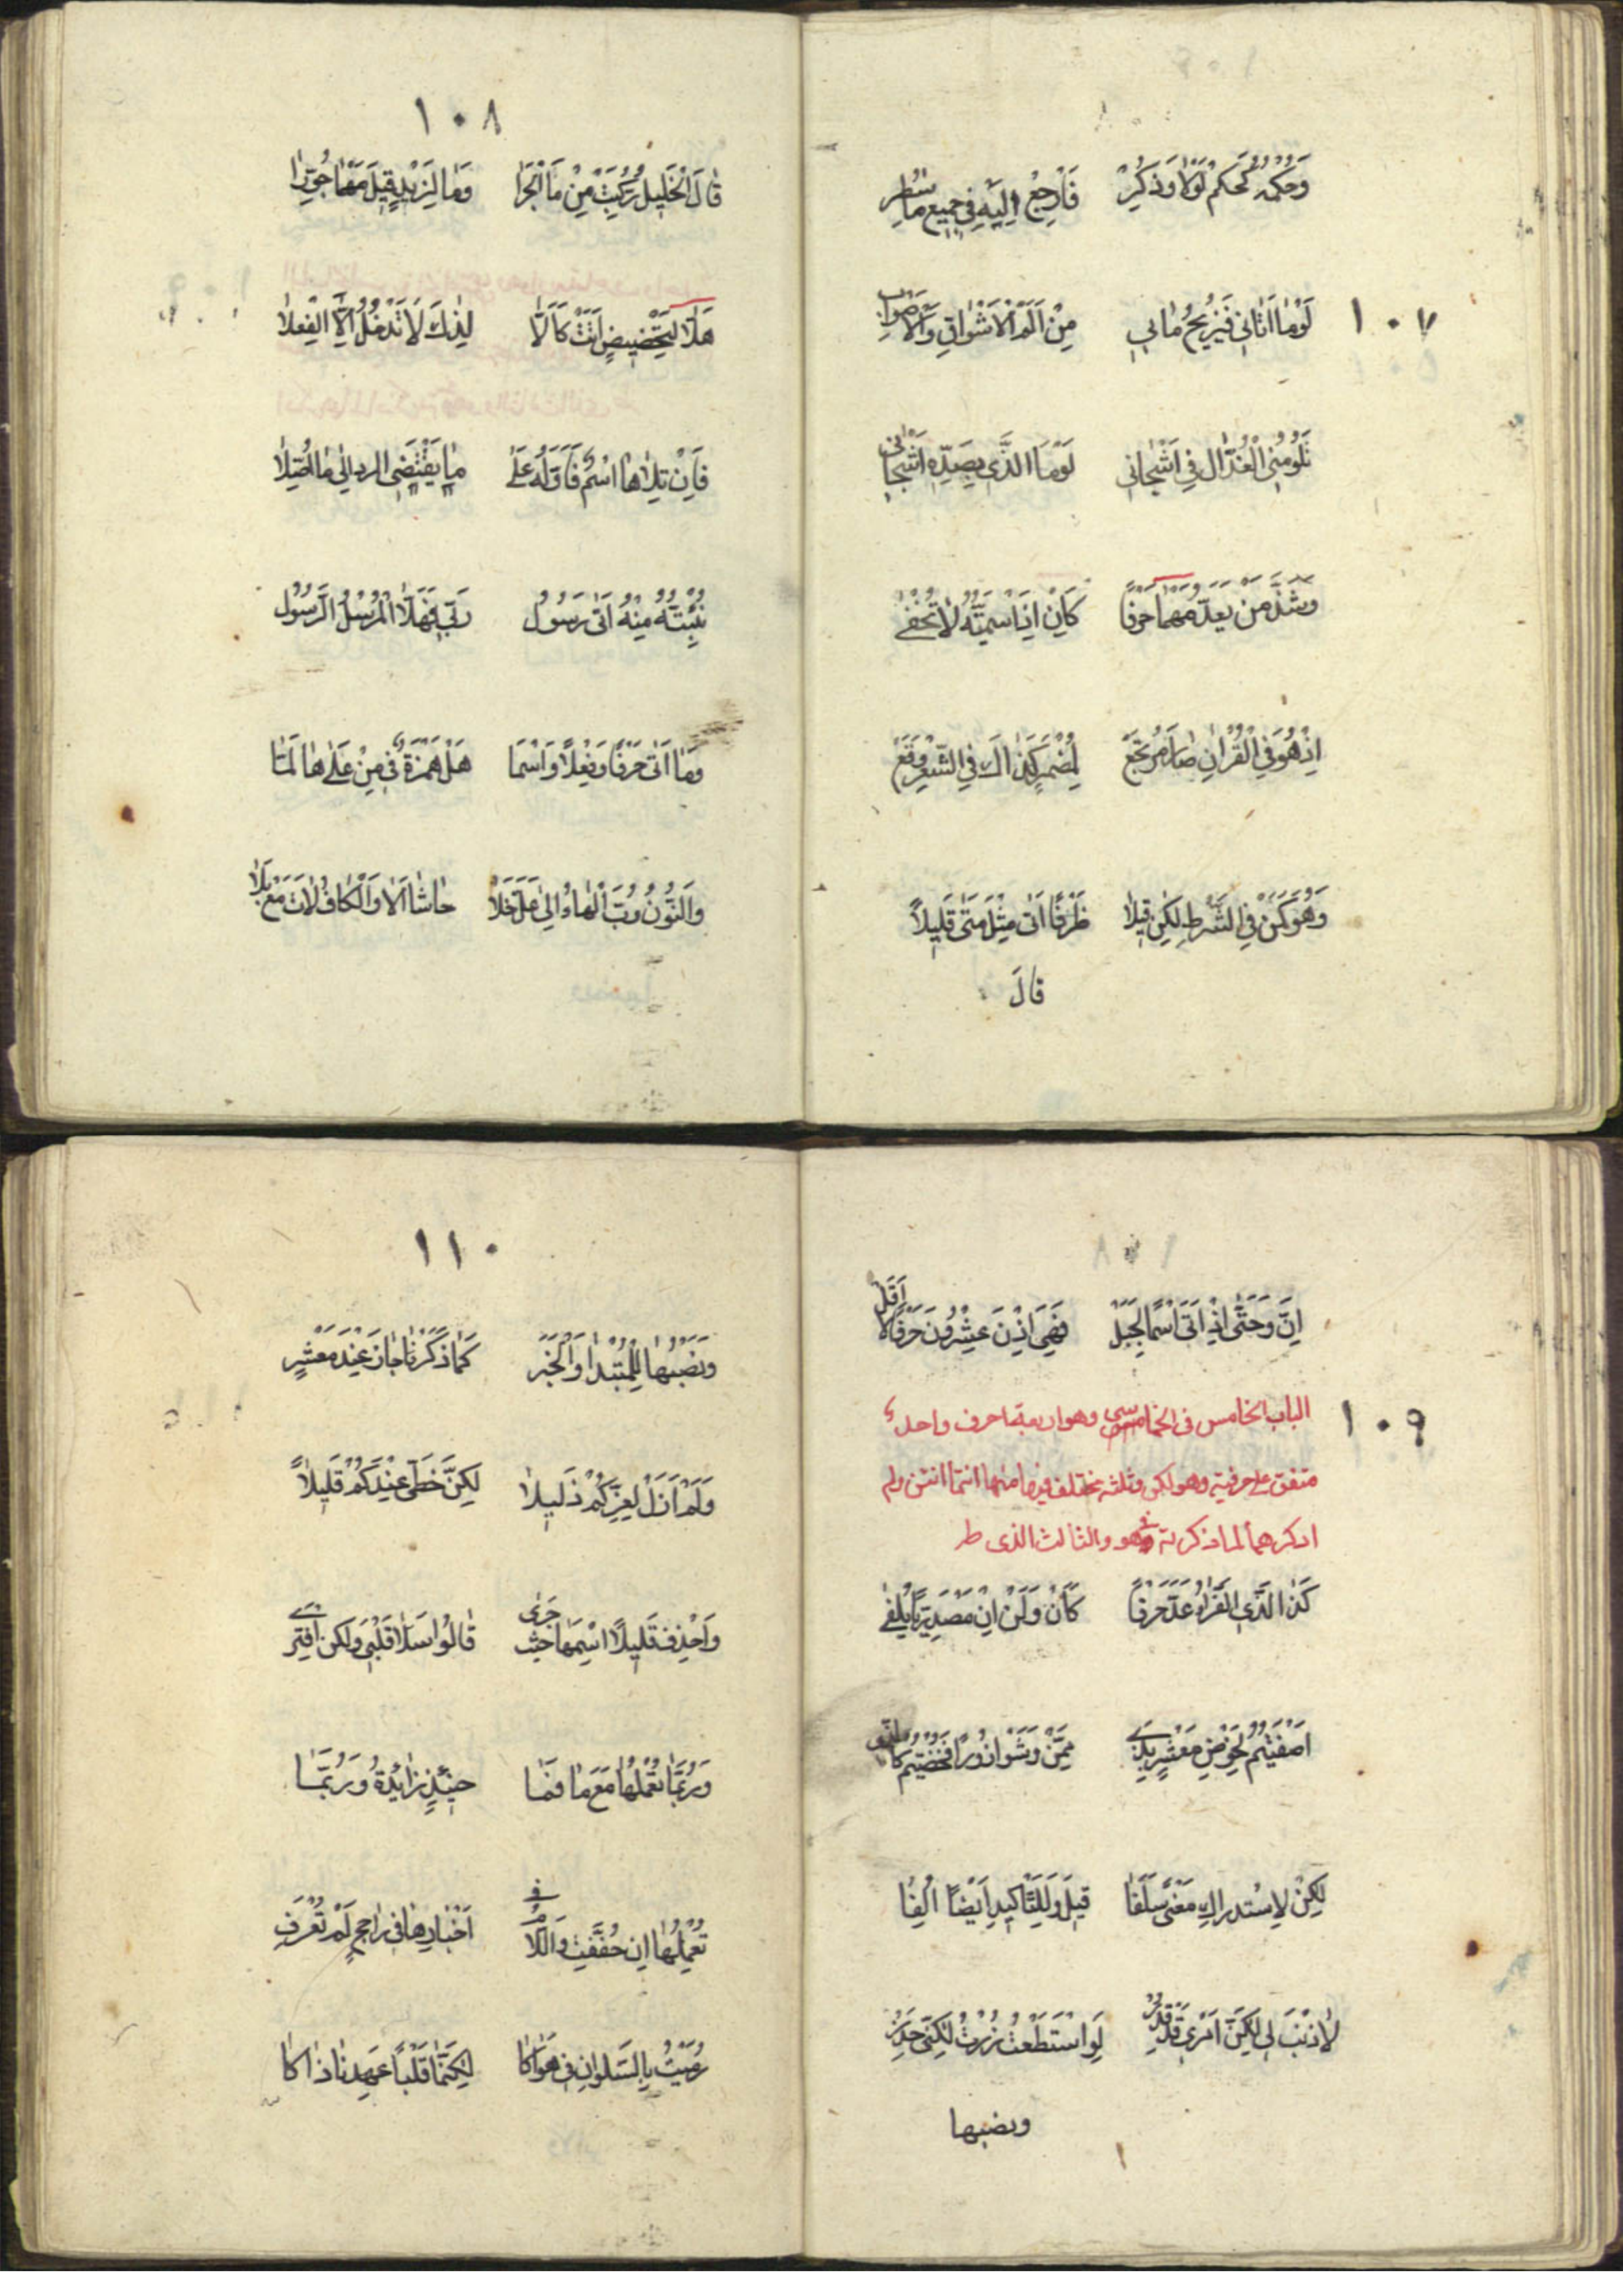 ١٠٧
وَحُكْمُهُ كَحُكْمِ لَوْلَا وَذُكِرْ فَارْجِعْ اِلَيْهِ فِي جَمِيعِ مَا سُطِرْ
لَوْمَا اَتَانِي فَيُزِيحُ مَا بِي مِنْ اَلَمِ الْاَشْوَاقِ وَالْاَوْصَابِ
تَلُومُنِي الْعُذَّالُ فِي اَشْجَانِي لَوْمَا الَّذِي بِصَدِّهِ اَشْجَانِي
وَشَذَّ مَنْ يَعُدُّ مَهْمَا حَرْفًا كَاِنْ اِذِ اسْمِيَّتُهُ لَا تُخْفَى
اِذْ هُوَ فِي الْقُرْاٰنِ صَارَ مَرْجَعْ لِمُضْمَرٍ كَذَاكَ فِي الشِّعْرِ وَقَعْ
وَهُوَ كَمَنْ فِي الشَّرْطِ لٰكِنْ قِيلَا ظَرْفًا اَتَى مِثْلَ مَتَى قَلِيلًا
قَالَ
١٠٨
قَالَ الْخَلِيلُ رُكِّبَتْ مِنْ مَا الْجَزَا وَمَا لِزَيْدٍ قِيلَ مَهْمَا جُوِّزَا
هَلَّا لِتَحْضِيضٍ اَتَتْ كَاَلَّا لِذَاكَ لَا تَدْخُلُ اِلَّا الْفِعْلَا
فَاِنْ تَلَاهَا اسْمٌ فَاَوِّلْهُ عَلَى مَا يَقْتَضِي الرد اِلَى مَا اُصِّلَا
نُبِّئْتُهُ مِنْهُ اَتَى رَسُولُ رَبِّي فَهَلَّا الْمُرْسِلُ الرَّسُولُ
وَمَا اَتَى حَرْفًا وَفِعْلًا وَاسْمَا هَلْ هَمْزَةٌ فِي مِنْ عَلَى هَا لَمَّا
وَالنُّونُ رُبَّ الْهَاءُ اِلَى عَلَّ خَلَا حَاشَا اَلَا وَالْكَافُ لَاتَ مَعْ بَلَا
١٠٩
اِنَّ وَحَتَّى اِذْ اَتَى اسْمًا لِجَبَلْ فَهِيَ اِذَنْ عِشْرُونَ حَرْفًا لَا اَقَلْ
الباب الخامس فى الخماسى وهو اربعة احرف واحد
متفق على حرفيته وهو لكن وثلثة مختلف فيها منها انتما انتن ولم
اذكرهما لما ذكرته فى هو والثالث الذى
كَذَا الَّذِي الْفَرَّاءُ عَدَّ حَرْفًا كَاَنْ وَلٰكِنْ مَصْدَرِيًّا يُلْفَى
لٰكِنْ لِاِسْتِدْرَاكِ مَعْنًى سَلَفَا قِيلَ وَلِلتَّاكِيدِ اَيْضًا اُلِفَا
لَا ذَنْبَ لِي لٰكِنَّ اَمْرِي قَدْ قُدِرْ لَوِ اسْتَطَعْتُ زُرْتُ لٰكِنِّي حَذِرْ
ونصبها
١١٠
وَنَصْبُهَا لِلْمُبْتَدَا وَالْخَبَرِ كَمَا ذَكَرْنَا جَازَ عِنْدَ مَعْشَرٍ
وَلَمْ اَزَلْ لِعِزِّكُمْ ذَلِيلًا لٰكِنَّ حَظِّي عِنْدَكُمْ قَلِيلًا
وَاحْذِفْ قَلِيلًا اسْمَهَا حَيْثُ جَرَى قَالُوا سَلَا قَلْبِي وَلٰكِنَّ افْتِرَى
وَرُبَّمَا تُعْمِلُهَا مَعْ مَا فَمَا حِينَئِذٍ زَائِدَةٌ وَرُبَّمَا
تُعْمِلُهَا اِنْ خُفِّفَتْ وَاللَّامُ فِي اَخْبَارِهَا فِي رَاجِحٍ لَمْ تُعْرَفِ
رُمِيتُ بِالسُّلْوَانِ فِي هَوَاكَا لٰكِنَّمَا قَلْبًا عَهِدْنَا ذَاكَا